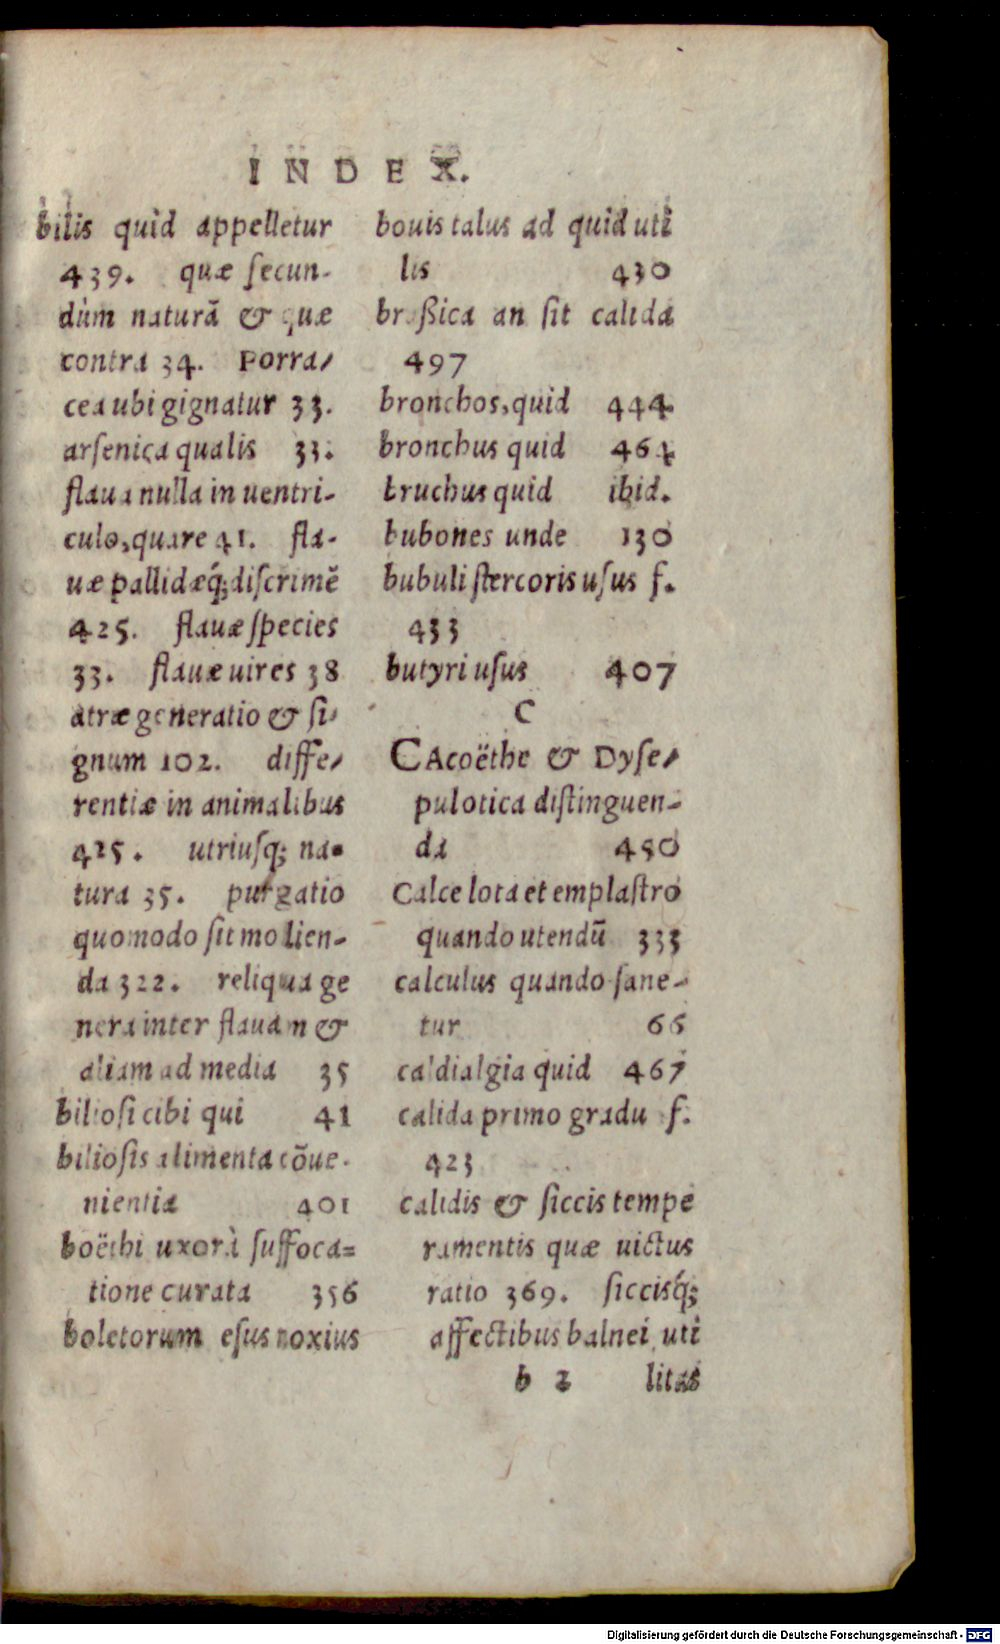 INDEX.
bilis quìd appelletur
439. quæ ſecun-
dùm naturã & quæ
contra 34. Porra-
cea ubi gignatur 33.
arſenica qualis 33.
flaua nulla in uentri-
culo, quare 41. fla-
uæ pallidæq́; diſcrimẽ
425. flauæ ſpecies
33. flauæ uires 38
atræ generatio & ſi-
gnum 102. diffe-
rentiæ in animalibus
425. utriuſq; na-
tura 35. purgatio
quomodo ſit molien-
da 322. reliqua ge
nera inter flauam &
aliam ad media 35
bilioſi cibi qui 41
bilioſis alimenta cõue-
nientia 401
boëthi uxorà ſuffoca=
tione curata 356
boletorum eſus noxius
bouis talus ad quid uti
lis 430
braßica an ſit calida
497
bronchos, quid 444
bronchus quid 464
bruchus quid ibid.
bubones unde 130
bubuli ſtercoris uſus f.
433
butyri uſus 407
C
CAcoëthe & Dyſe-
pulotica diſtinguen-
da 450
Calce lota et emplaſtro
quando utendũ 333
calculus quando ſane-
tur 66
caldialgia quid 467
calida primo gradu f.
423
calidis & ſiccis tempe
ramentis quæ uictus
ratio 369. ſiccisq́;
affectibus balnei uti
b 2 litas
Digitalisierung gefördert durch die Deutsche Forschungsgemeinschaft - DFG